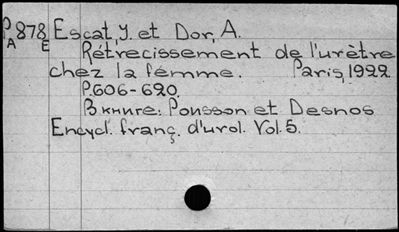 P878 Escat, J. et Dor, A.
A E Rétrecissement de l'urètre
chez la femme. Paris, 1922.
P.606-620.
В книге: Pousson et Desnos
Encycl. franç. d'urol. Vol. 5.